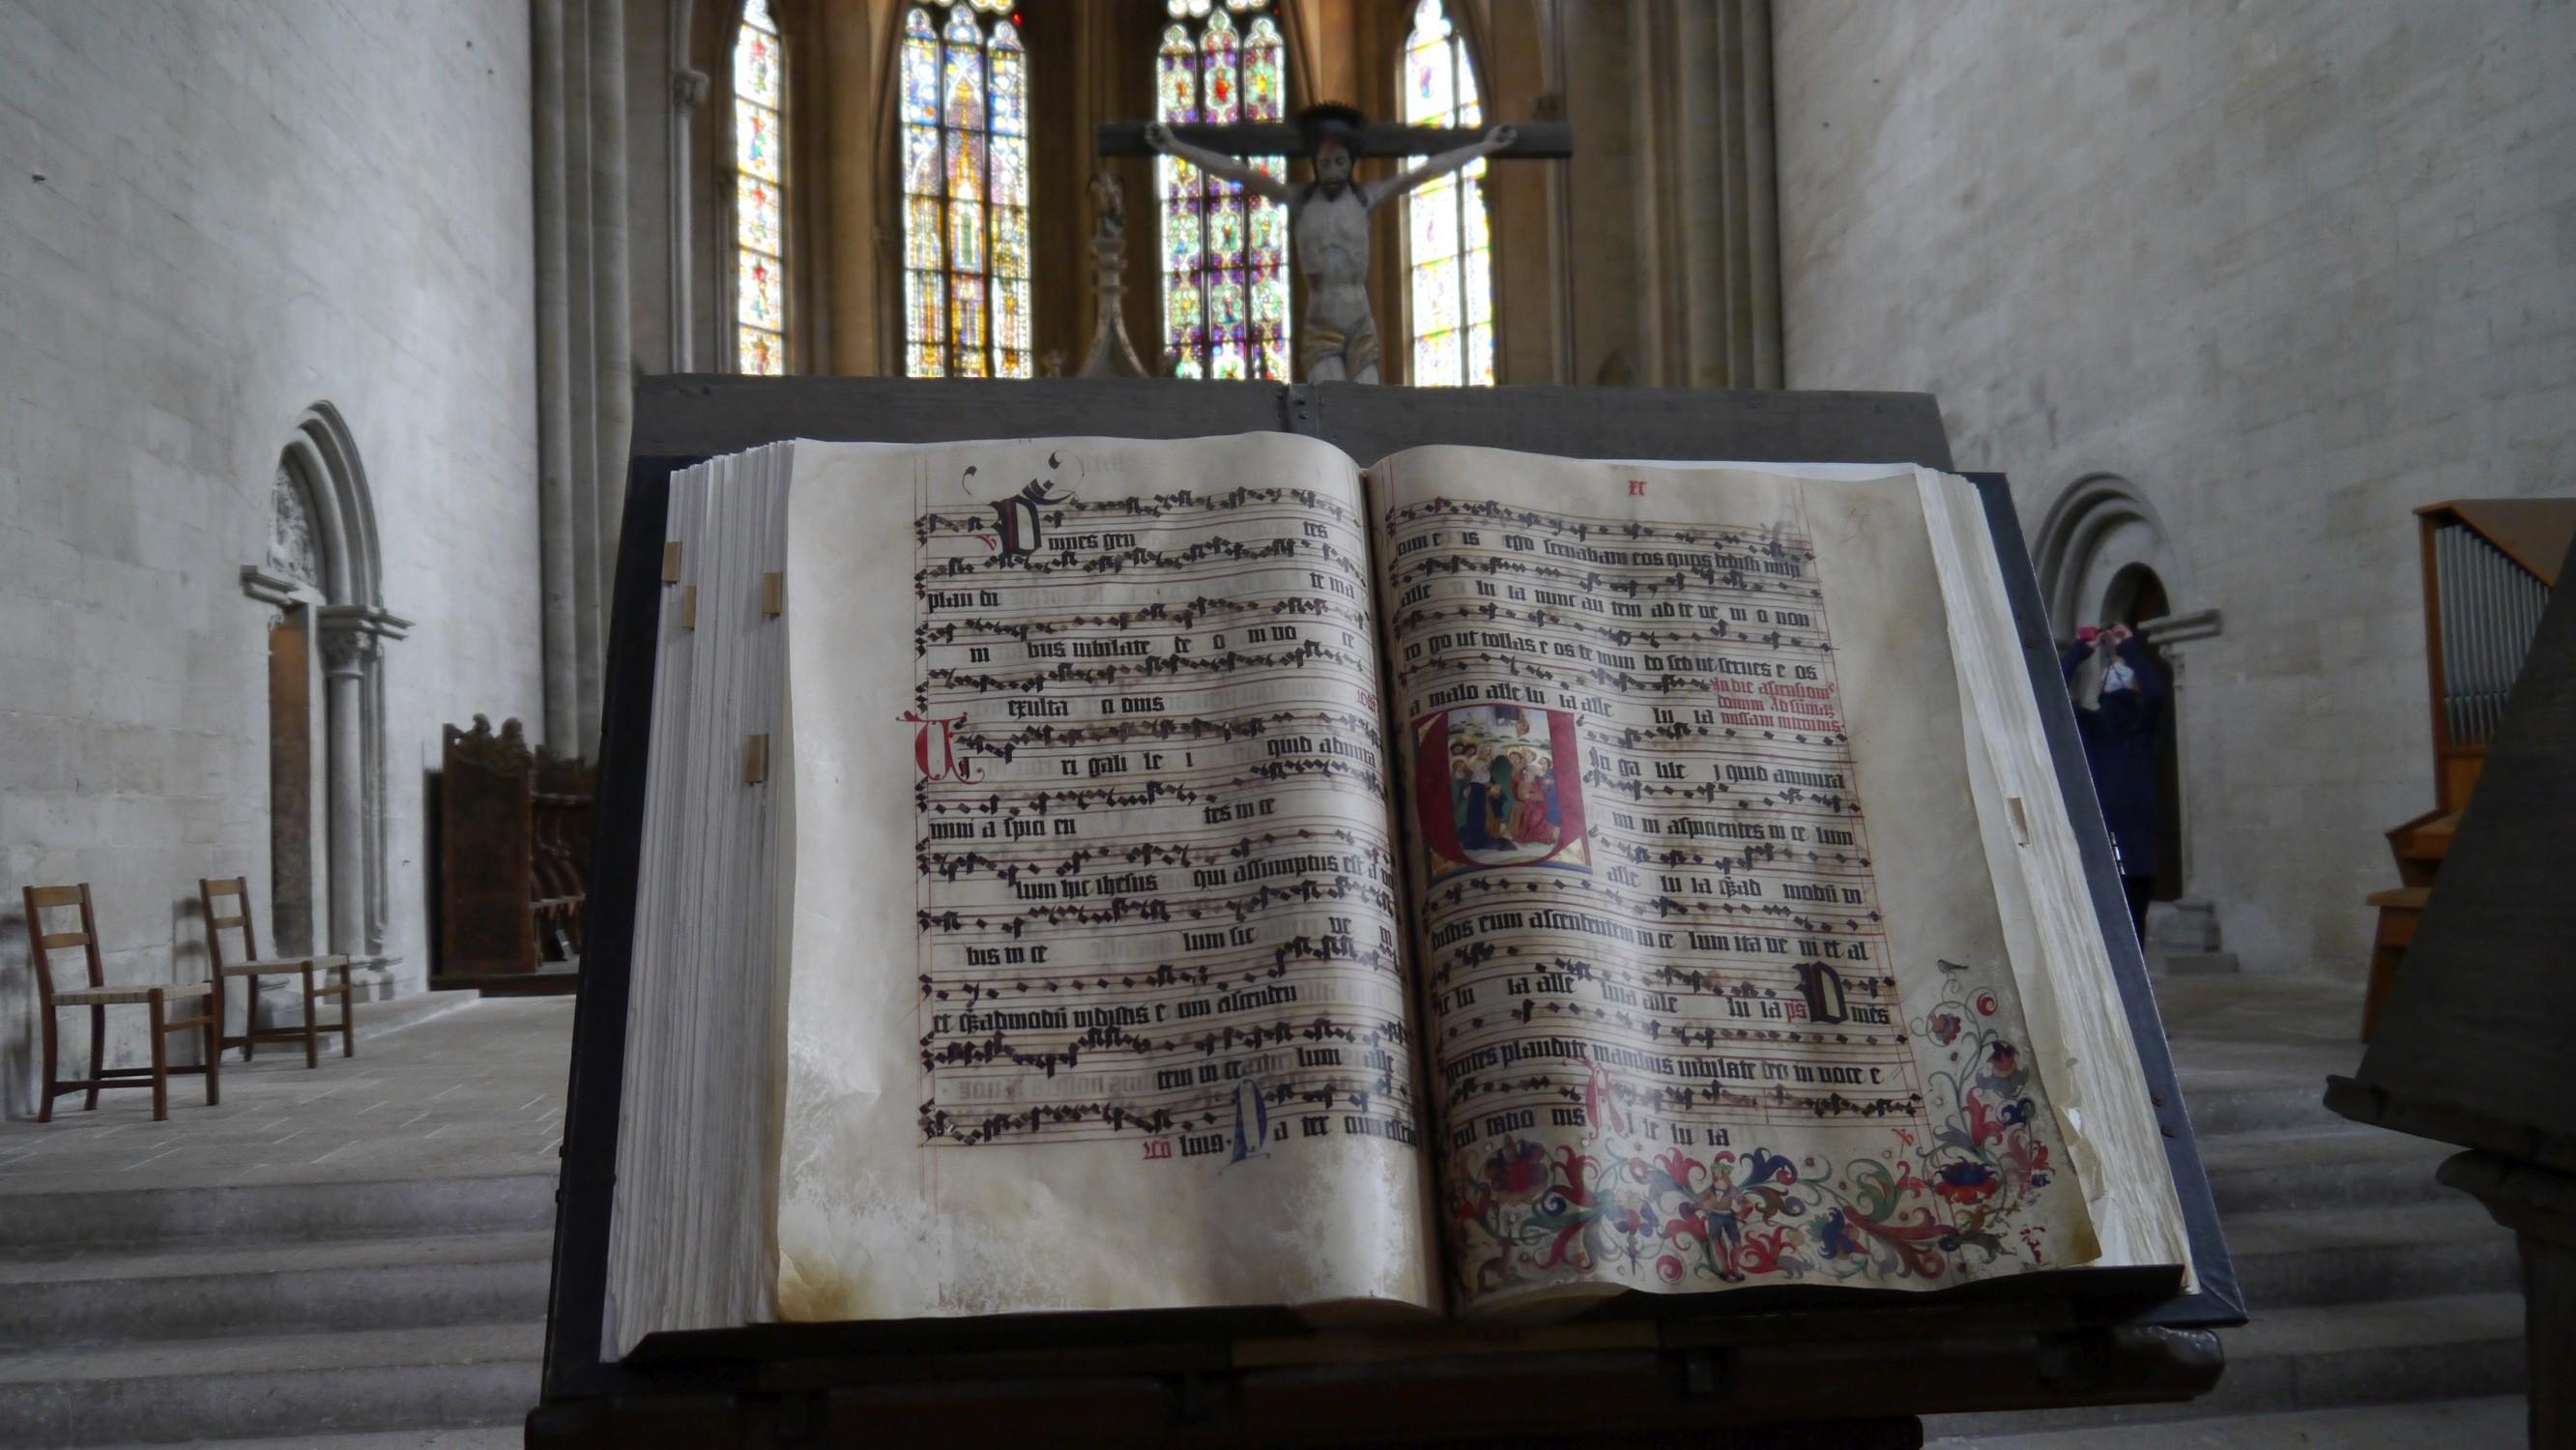 Omnes gen tes
plau di te ma
ni bus iubilate de o in vo ce
exulta ti onis
Ui ri gali le i quid admira
mini a spici en tes in ce
lum hic ihesus qui assumptus est a vo
bis in ce lum sic ve ni
et q̃admodũ vidistis e um ascenden
tem in ce lum alle
luia. Pa ter cum essem
xc
cum e is ego servabam eos quos dedisti mihi
alle lu ia nunc au tem ad te ve ni o non
ro go ut tollas e os de mun do sed ut serves e os
a malo alle lu ia alle lu ia
In die ascensionis
domini Ad summã
missam introitus
Uiri ga lile i quid admira
mi ni aspicientes in ce lum
alle lu ia q̃ad modũ vi
distis eum ascendentem in ce lum ita ve ni et al
le lu ia alle luia alle lu ia ps Omnes
gentes plaudite manibus iubilate deo in voce e
xul tatio nis A l le lu ia